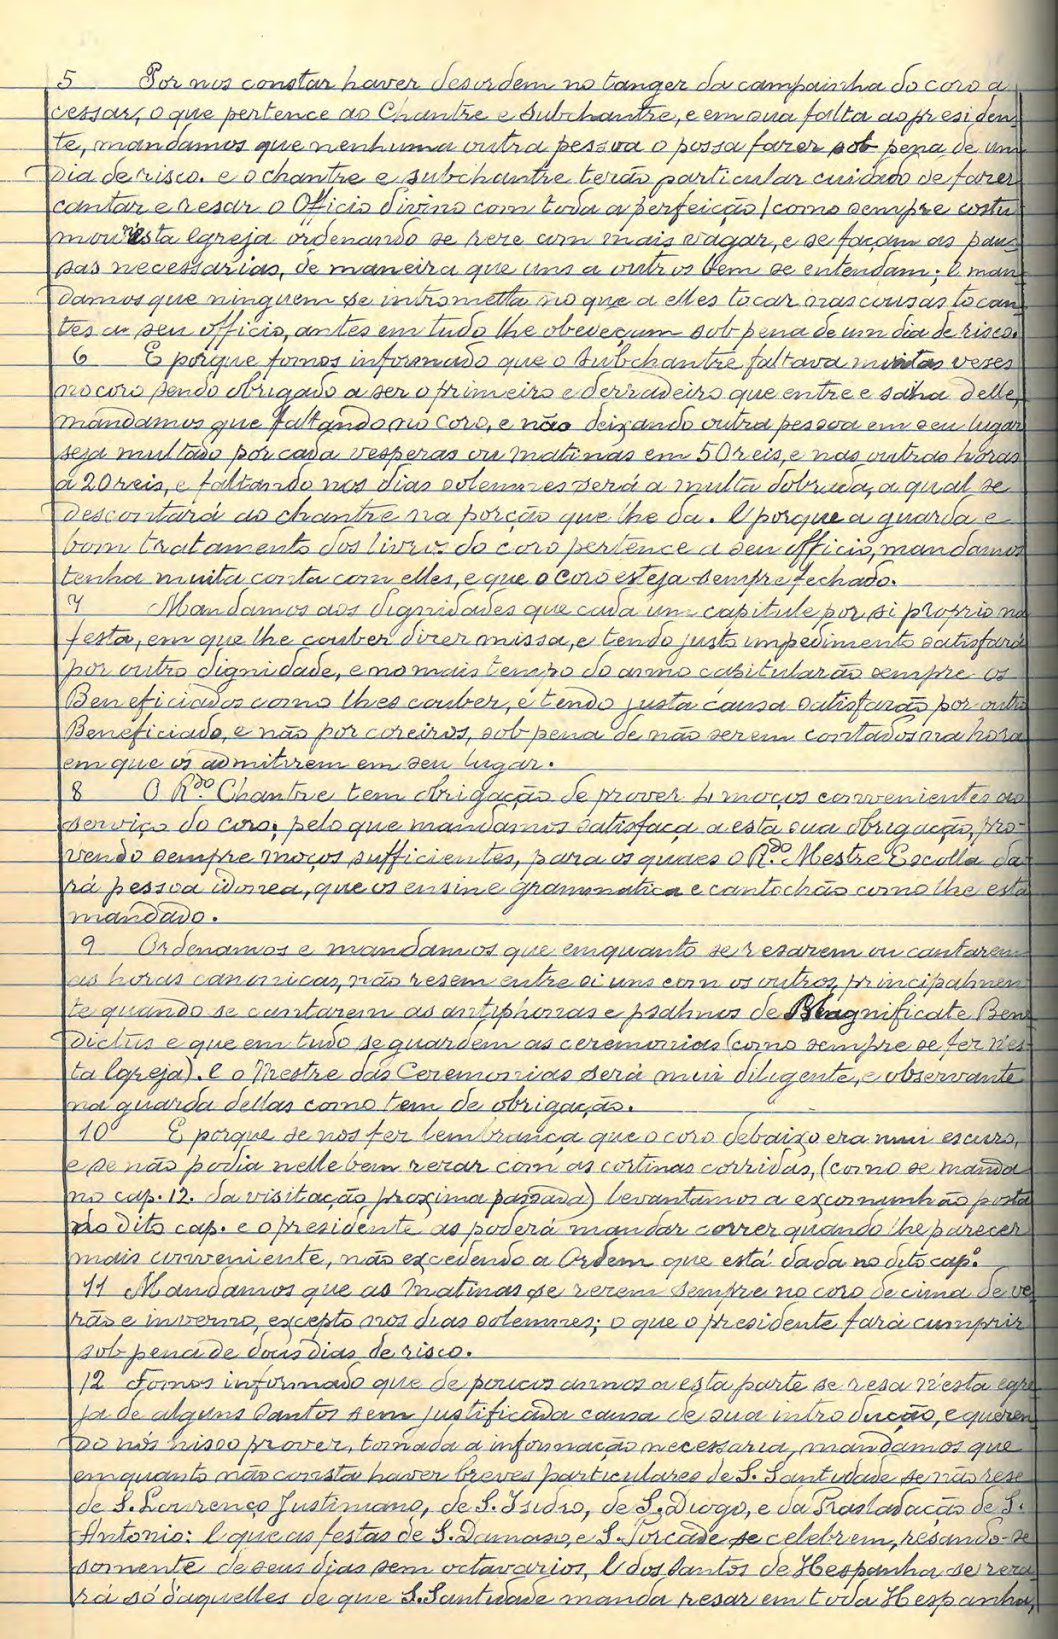 5 Por nos constar haver desordem no tanger da campainha do coro a
cessar, o que pertence ao Chantre e Subchantre, e em sua falta ao presiden-
te, mandamos que nenhuma outra pessoa o possa fazer sob pena de um
dia de risco. e o chantre e subchantre terão particular cuidado de fazer
cantar e resar o Officio divino com toda a perfeição (como sempre costu
mou n'esta Igreja ordenando se reze com mais vagar, e se façam as pau-
sas necessarias, de maneira que uns a outros bem se entendam; E man-
damos que ninguem se intrometta no que a elles tocar nas cousas tocan-
tes a seu officio, antes em tudo lhe obedeçam sob pena de um dia de risco.
6 E porque fomos informado que o Subchantre faltava muitas veses
no coro sendo obrigado a ser o primeiro e derradeiro que entre e saha delle,
mandamos que faltando no coro, e não deixando outra pessoa em seu lugar
seja multado por cada vesperas ou matinas em 50 reis, e nas outras horas
a 20 reis, e faltando nos dias solemnes será a multa dobrada, a qual se
descontará ao chantre na porção que lhe da. E porque a guarda e
bom tratamento dos livros do coro pertence a seu officio, mandamos
tenha muita conta com elles, e que o coro esteja sempre fechado.
7 Mandamos aos dignidades que cada um capitule por si proprio na
festa, em que lhe couber dizer missa, e tendo justo impedimento satisfará
por outro dignidade, e no mais tempo do anno capitularão sempre os
Beneficiados como lhes couber, e tendo justa causa satisfarão por outro
Beneficiado, e não por coreiros, sob pena de não serem contados na hora
em que os admitirem em seu lugar.
8 O R.do Chantre tem obrigação de prover 4 moços convenientes ao
serviço do coro; pelo que mandamos satisfaça a esta sua obrigação, pro-
vendo sempre moços sufficientes, para os quaes o R.do Mestre Escolla da-
rá pessoa idonea, que os ensine grammatica e cantochão como lhe está
mandado.
9 Ordenamos e mandamos que emquanto se resarem ou cantarem
as horas canonicas, não resem entre si uns com os outros, principalmen
te quando se cantarem as antiphonas e psalmos de Magnificate Bene
dictus e que em tudo se guardem as ceremonias (como sempre se fez n'es-
ta Igreja). E o Mestre das Ceremonias será mui diligente, e observante
na guarda dellas como tem de obrigação.
10 E porque se nos fez lembrança que o coro debaixo era mui escuro,
e se não podia nelle bem rezar com as cortinas corridas, (como se manda
no cap. 12. da visitação proxima passada) levantamos a excomunhão posta
no dito cap. e o presidente as poderá mandar correr quando lhe parecer
mais conveniente, não excedendo a Ordem que está dada no dito cap.o
11 Mandamos que as Matinas se rezem sempre no coro de cima de ve-
rão e inverno, excepto nos dias solemnes; o que o presidente fará cumprir
sob pena de dous dias de risco.
12 Fomos informado que de poucos annos a esta parte se resa n'esta egre
ja de alguns Santos sem justificada causa de sua introducção, e queren-
do nós nisso prover, tomada a informação necessaria, mandamos que
emquanto não consta haver breves particulares de S. Santidade se não rese
de S. Lourenço Justiniano, de S. Isidro, de S. Diogo, e da Trasladação de S.
Antonio: E que as festas de S. Damaso, e S. Torcade se celebrem, resando-se
somente de seus dias sem octavarios, E dos Santos de Hespanha se reza-
rá só d'aquelles de que S. Santidade manda resar em toda Hespanha,